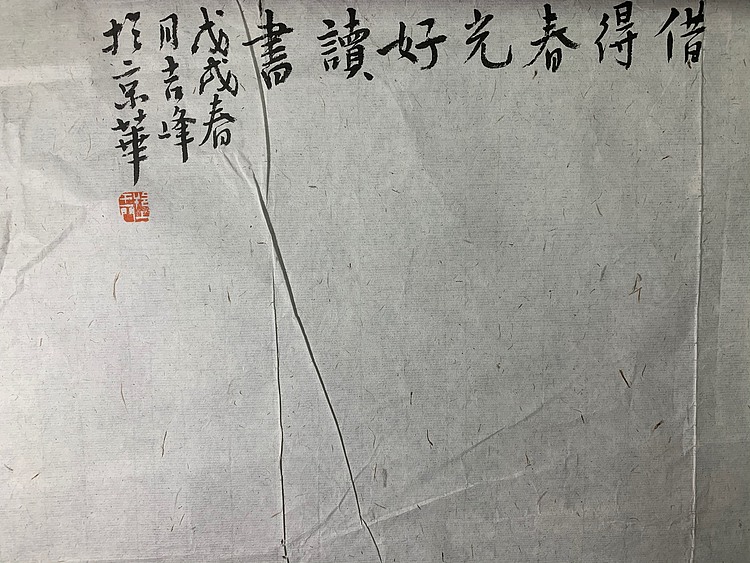 借得春光好讀書
戊戌春
月吉峰
於京華